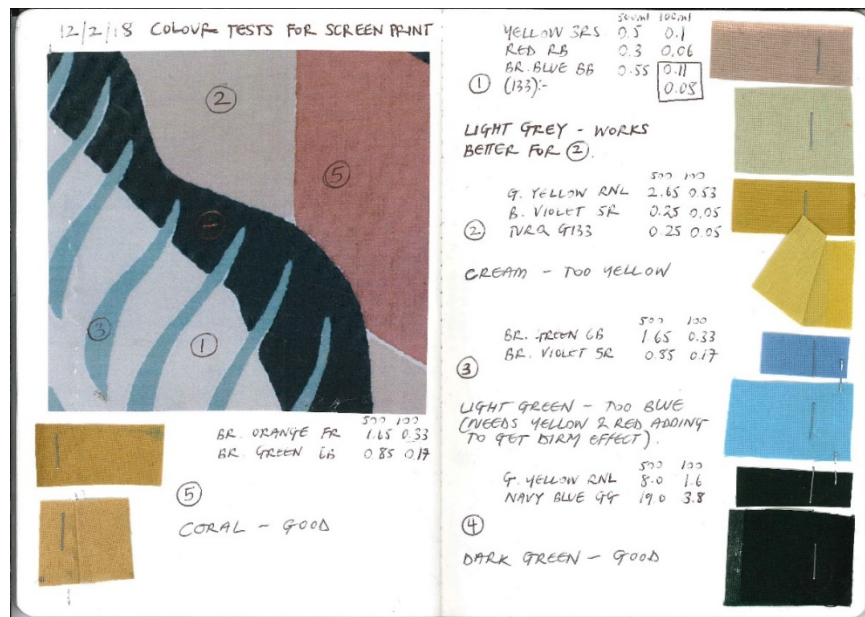 12/2/18 COLOUR TESTS FOR SCREEN PRINT
2
5
1
3
1
500 100
BR. ORANGE FR 1.65 0.33
BR. GREEN 6B 0.85 0.17
5
CORAL - GOOD
500ml 100ml
YELLOW 3RS 0.5 0.1
RED RB 0.3 0.06
BR. BLUE BB 0.55 0.11
1 (133):- 0.08
LIGHT GREY - WORKS
BETTER FOR 2.
500 100
G. YELLOW RNL 2.65 0.53
B. VIOLET 5R 0.25 0.05
2 TURQ G133 0.25 0.05
CREAM - TOO YELLOW
500 100
BR. GREEN 6B 1.65 0.33
BR. VIOLET 5R 0.85 0.17
3
LIGHT GREEN - TOO BLUE
(NEEDS YELLOW & RED ADDING
TO GET EFFECT).
500 100
G. YELLOW RNL 8.0 1.6
NAVY BLUE GG 19.0 3.8
4
DARK GREEN - GOOD